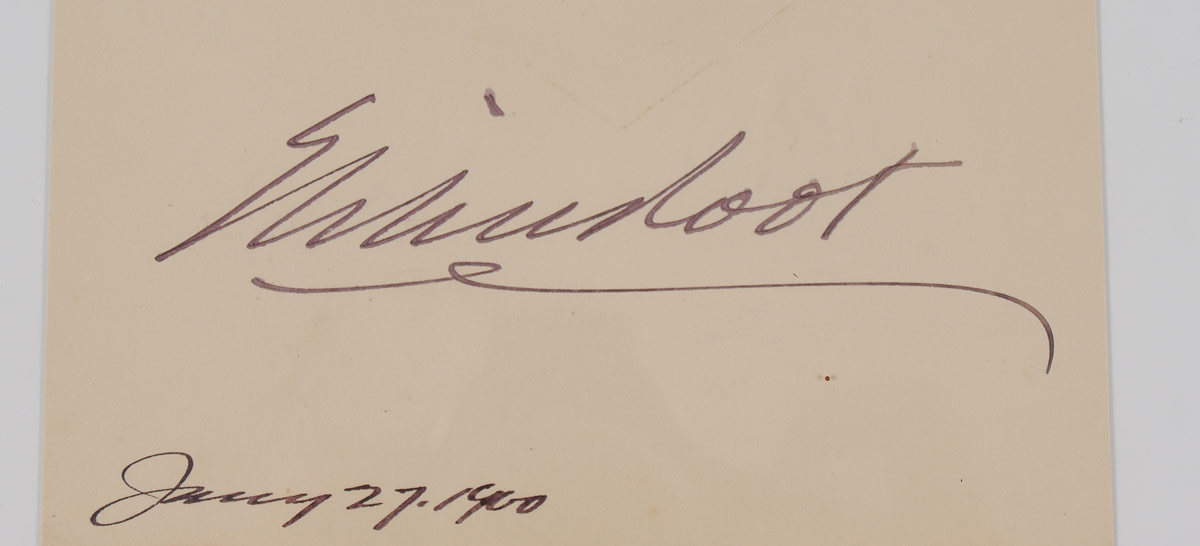 Elihu Root
Jany 27. 1900